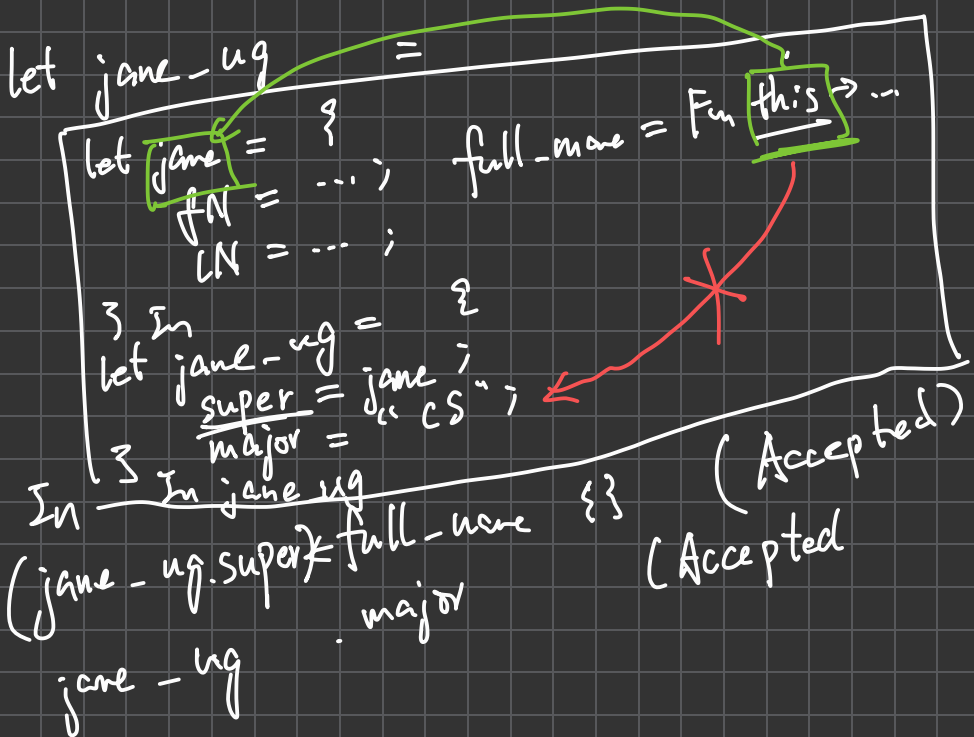 let jane_ug =
let jane = { full_name = Fun this -> ...
fN = ... ;
lN = ... ;
} In
let jane_ug = {
super = jane ;
major = "CS" ;
} In jane_ug
In
(jane_ug.super) <- full_name {} (Accepted)
jane_ug . major (Accepted